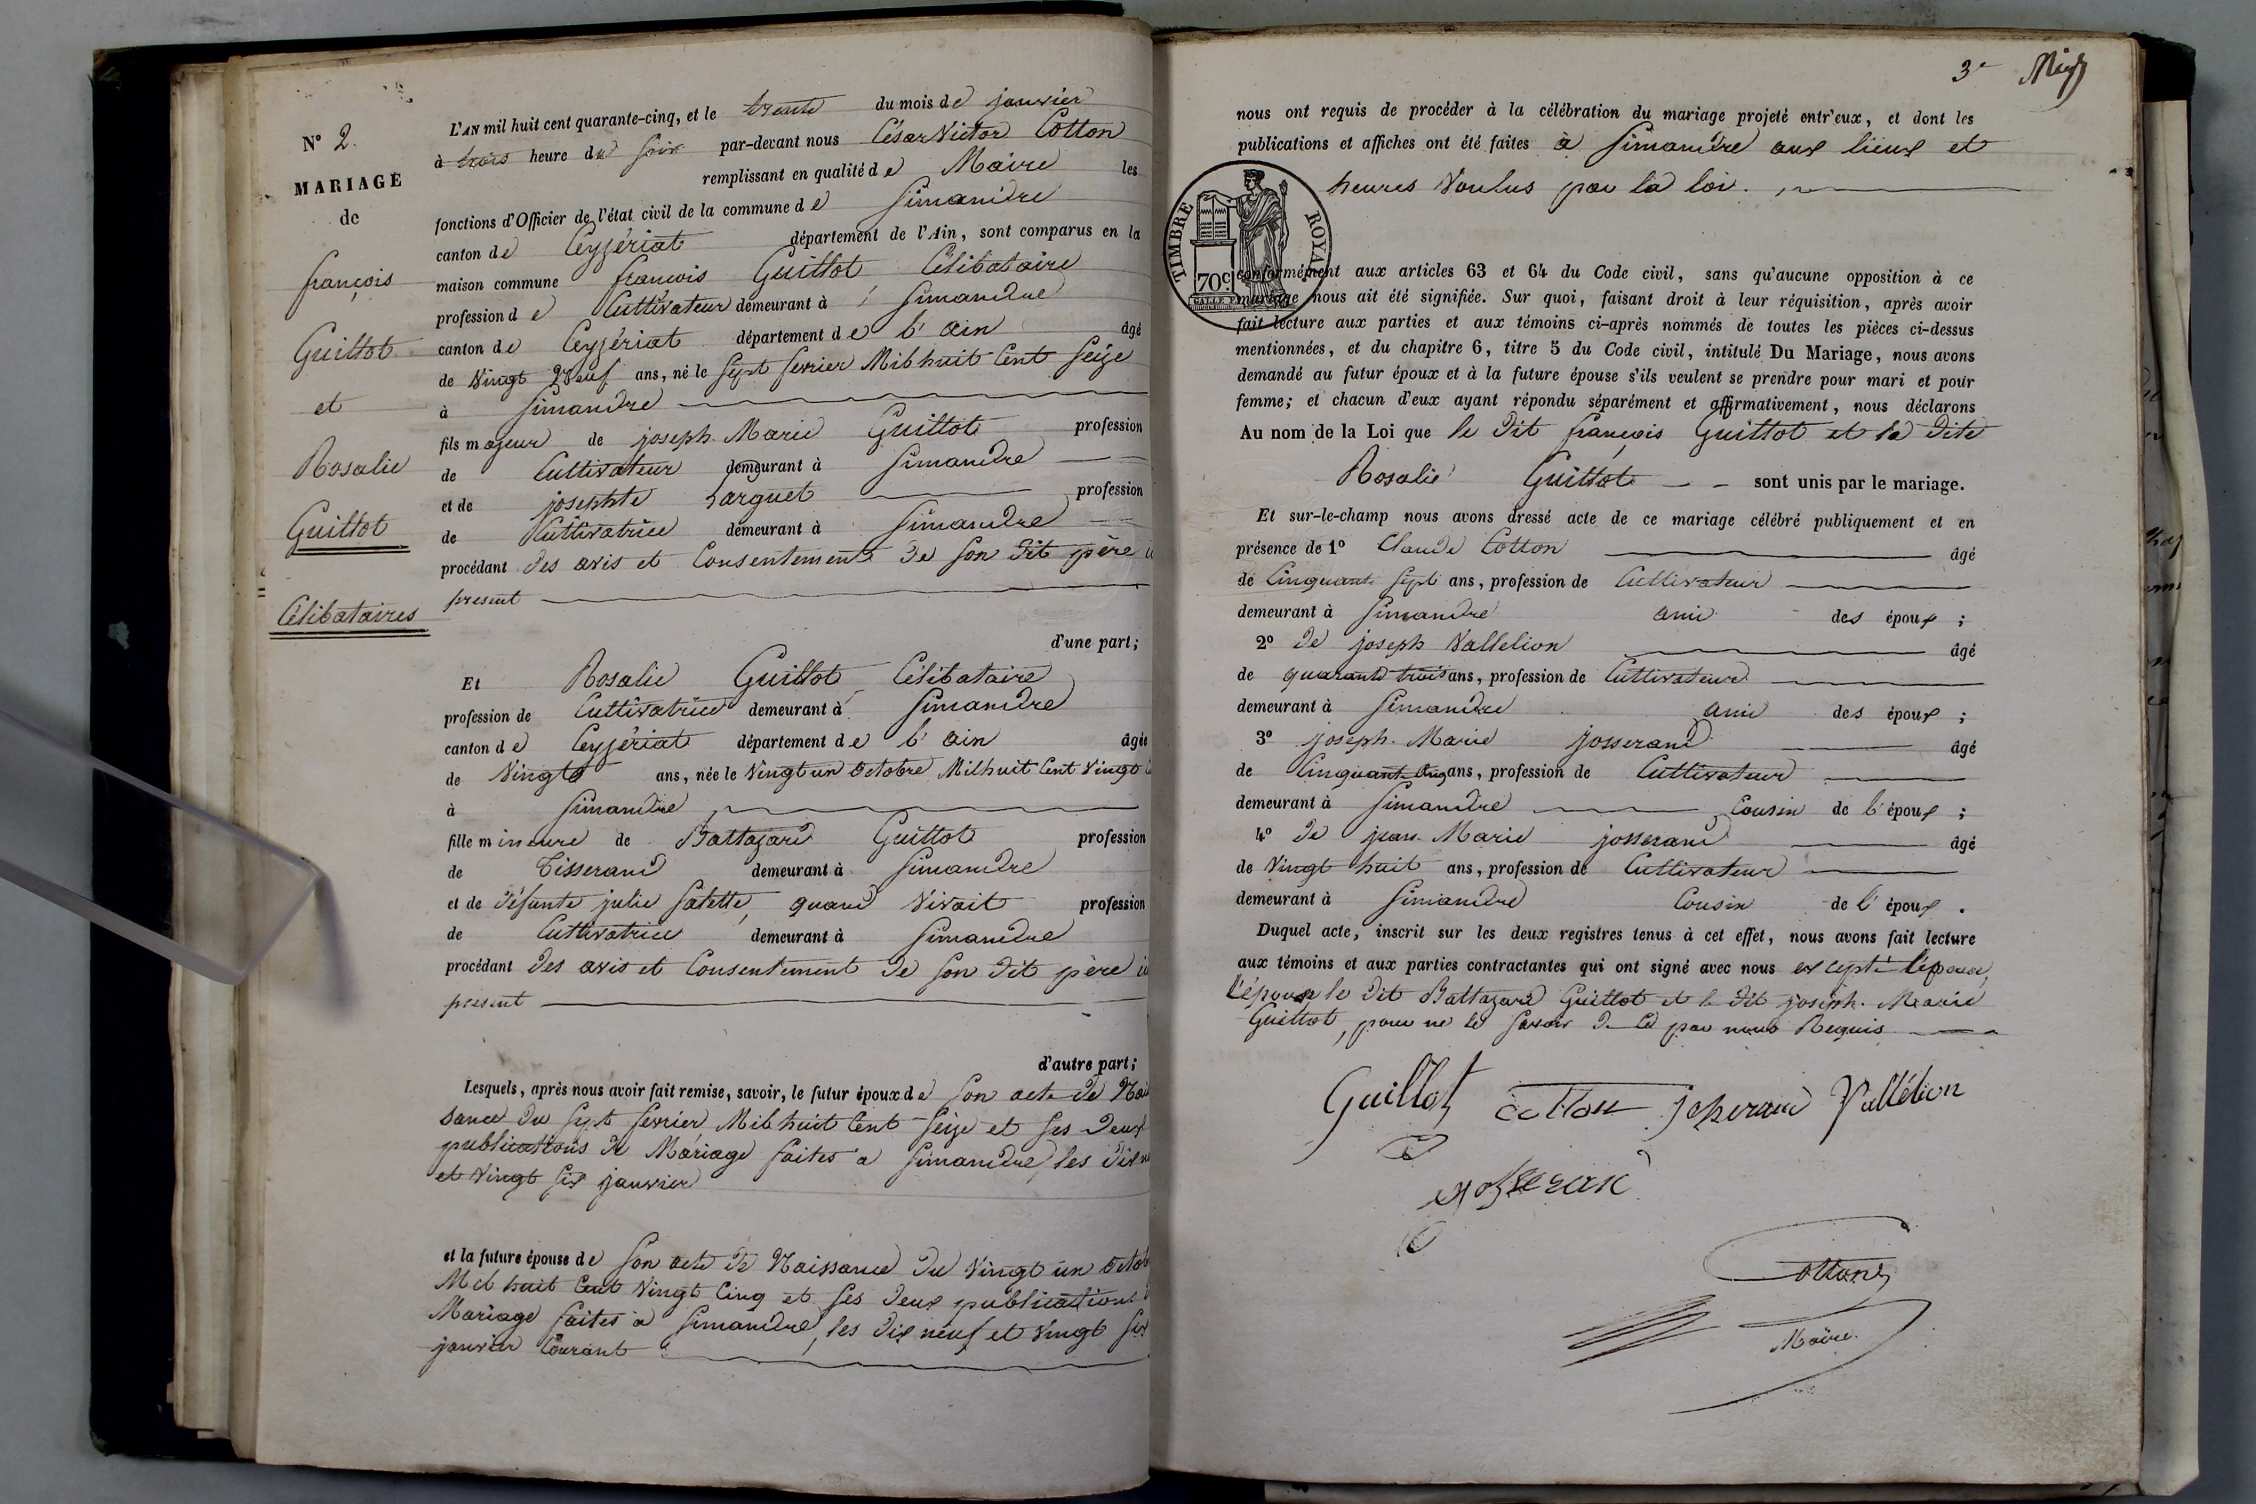 N° 2.
MARIAGE
de
françois
Guillot
et
Rosalie
Guillot
Célibataires
L'AN mil huit cent quarante-cinq, et le trente du mois de janvier
à trois heure du soir par-devant nous César Victor Cotton
remplissant en qualité de Maire les
fonctions d'Officier de l'état civil de la commune de Simandre
canton de Ceyzériat département de l'Ain, sont comparus en la
maison commune françois Guillot Célibataire
profession de Cultivateur demeurant à Simandre
canton de Ceyzériat département de l'ain âgé
de Vingt Neuf ans, né le sept fevrier Mil huit Cent Seize
à Simandre
fils majeur de joseph Marie Guillot profession
de Cultivateur demeurant à Simandre
et de josephte profession
de Cultivatrice demeurant à Simandre
procédant des avis et Consentement de son dit père
présent
d'une part;
Et Rosalie Guillot Célibataire
profession de Cultivatrice demeurant à Simandre
canton de Ceyzériat département de l'ain âgée
de Vingt ans, née le Vingt un Octobre Mil huit Cent Vingt
à Simandre
fille mineure de Baltazard Guillot profession
de Tisserand demeurant à Simandre
et de défunte julie Salette, quand Vivait profession
de Cultivatrice demeurant à Simandre
procédant des avis et Consentement de son dit père
présent
d'autre part;
Lesquels, après nous avoir fait remise, savoir, le futur époux de son acte de Nais
sance du sept fevrier Mil huit Cent Seize et ses deux
publications de Mariage faites a Simandre, les dix
et Vingt six janvier
et la future épouse de son acte de Naissance du Vingt un Octob
Mil huit Cent Vingt Cinq et ses deux publications
Mariage faites a Simandre, les dix neuf et Vingt six
janvier Courant
3e
nous ont requis de procéder à la célébration du mariage projeté entr'eux, et dont les
publications et affiches ont été faites à Simandre aux lieux et
heures Voulus par la loi.
TIMBRE ROYAL
70 c
conformément aux articles 63 et 64 du Code civil, sans qu'aucune opposition à ce
mariage nous ait été signifiée. Sur quoi, faisant droit à leur réquisition, après avoir
fait lecture aux parties et aux témoins ci-après nommés de toutes les pièces ci-dessus
mentionnées, et du chapitre 6, titre 5 du Code civil, intitulé Du Mariage, nous avons
demandé au futur époux et à la future épouse s'ils veulent se prendre pour mari et pour
femme; et chacun d'eux ayant répondu séparément et affirmativement, nous déclarons
Au nom de la Loi que le dit françois Guillot et la dite
Rosalie Guillot sont unis par le mariage.
Et sur-le-champ nous avons dressé acte de ce mariage célébré publiquement et en
présence de 1° Claude Cotton âgé
de Cinquante Sept ans, profession de Cultivateur
demeurant à Simandre ami des époux ;
2° de joseph Vallelion âgé
de quarante trois ans, profession de Cultivateur
demeurant à Simandre ami des époux ;
3° joseph Marie josserand âgé
de ans, profession de Cultivateur
demeurant à Simandre Cousin de l'époux ;
4° de jean Marie josserand âgé
de Vingt huit ans, profession de Cultivateur
demeurant à Simandre Cousin de l'époux .
Duquel acte, inscrit sur les deux registres tenus à cet effet, nous avons fait lecture
aux témoins et aux parties contractantes qui ont signé avec nous excepté l'épouse,
l'époux le dit Baltazard Guillot et le dit joseph Marie
Guillot, pour ne le savoir de ce par nous Requis
Guillot Cotton joserand Vallélion
josserand
Cotton
Maire.